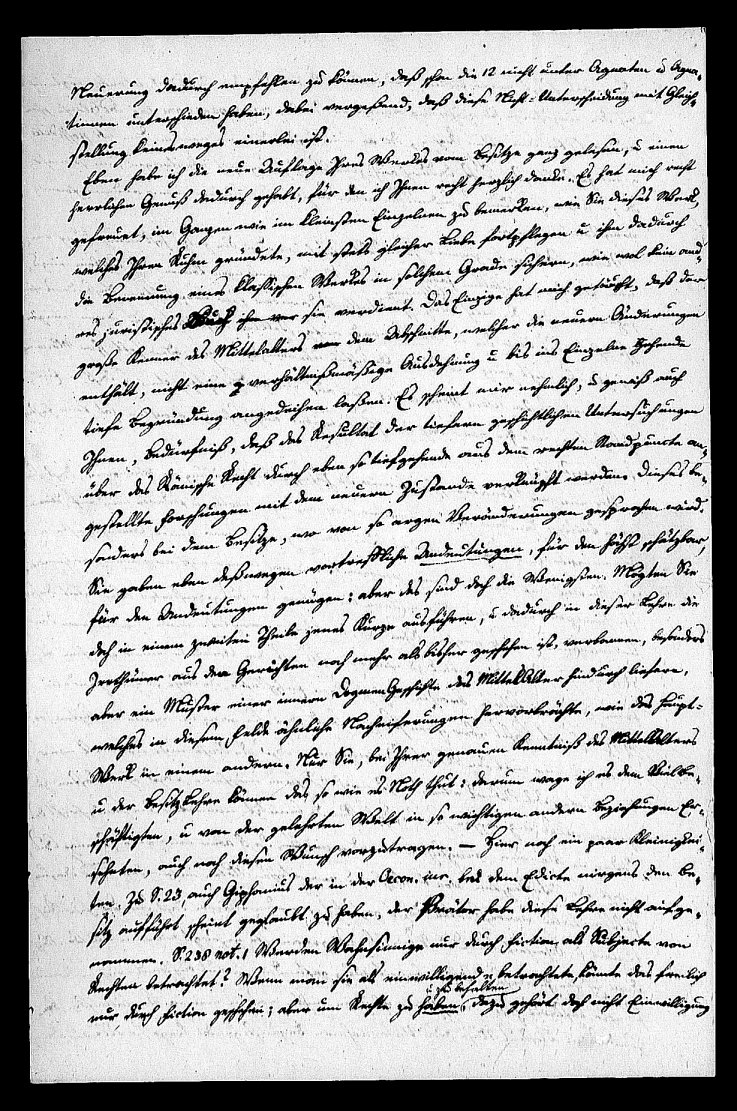 Neuerung dadurch empfehlen zu können, daß schon die 12 nicht unter Agnaten u Agna-
tinnen unterschieden haben, dabei vergessend, daß diese Nicht-Unterscheidung mit Gleich-
stellung keineswegs einerlei ist.
Eben habe ich die neue Auflage Ihres Werkes vom Besitze ganz gelesen, u einen
herrlichen Genuß dadurch gehabt, für den ich Ihnen recht herzlich danke. Es hat mich recht
gefreuet, im Ganzen wie im kleinsten Einzelnen zu bemerken, wie Sie dieses Werk,
welches Ihren Ruhm gründete, mit stets gleicher Liebe fortpflegen u ihm dadurch
die Benennung eines klassischen Werkes in solchem Grade sichern, wie wol kein and-
res juristisches Buch sie verdient. Das Einzige hat mich getäuscht, daß der
große Kenner des Mittelalters dem Abschnitte, welcher die neuern Änderungen
enthält, nicht eine verhältnißmäßige Ausdehnung u bis ins Einzelne gehende
tiefe Begründung angedeihen lassen. Es scheint mir nehmlich, u gewiß auch
Ihnen, Bedürfniß, daß das Resultat der tiefern geschichtlichen Untersuchungen
über das Römische Recht durch eben so tiefgehende aus dem rechten Standpuncte an-
gestellte Forschungen mit dem neuern Zustande verknüpft werden. Dieses be-
sonders bei dem Besitze, wo von so argen Veränderungen gesprochen wird.
Sie gaben eben deßwegen vortreffliche Andeutungen, für den höchst schätzbar,
für den Andeutungen genügen; aber das sind doch die Wenigsten. Mögten Sie
doch in einem zweiten Theile jenes Kurze ausführen, u dadurch in dieser Lehre die
Irrthümer aus den Gerichten noch mehr als bisher geschehen ist, verbannen, besonders
aber ein Muster einer innern Dogmen-Geschichte des Mittelalter hindurch liefern,
welches in diesem Felde ähnliche Nacheiferungen hervorbrächte, wie das Haupt-
Werk in einem andern. Nur Sie, bei Ihrer genauen Kenntniß des Mittelalters
u der Besitzlehre können das so wie es Noth thut: darum wage ich es dem Vielbe-
schäftigten, u von der gelehrten Welt in so wichtigen andern Beziehungen Er-
sehnten, auch noch diesen Wunsch vorzutragen. — Hier noch ein paar Kleinigkei-
ten. Zu S. 23 auch Giphanius der in der Oecon. iur. bei dem Edicte nirgends den Be-
sitz aufführt scheint geglaubt zu haben, der Prätor habe diese Lehre nicht aufge-
nommen. S. 238 not. 1 Werden Wahnsinnige nur durch Fiction als Subjecte von
Rechten betrachtet? Wenn man sie als einwilligend betrachtete, könnte das freilich
nur durch Fiction geschehen; aber um Rechte zu haben u zu behalten, dazu gehört doch nicht Einwilligung